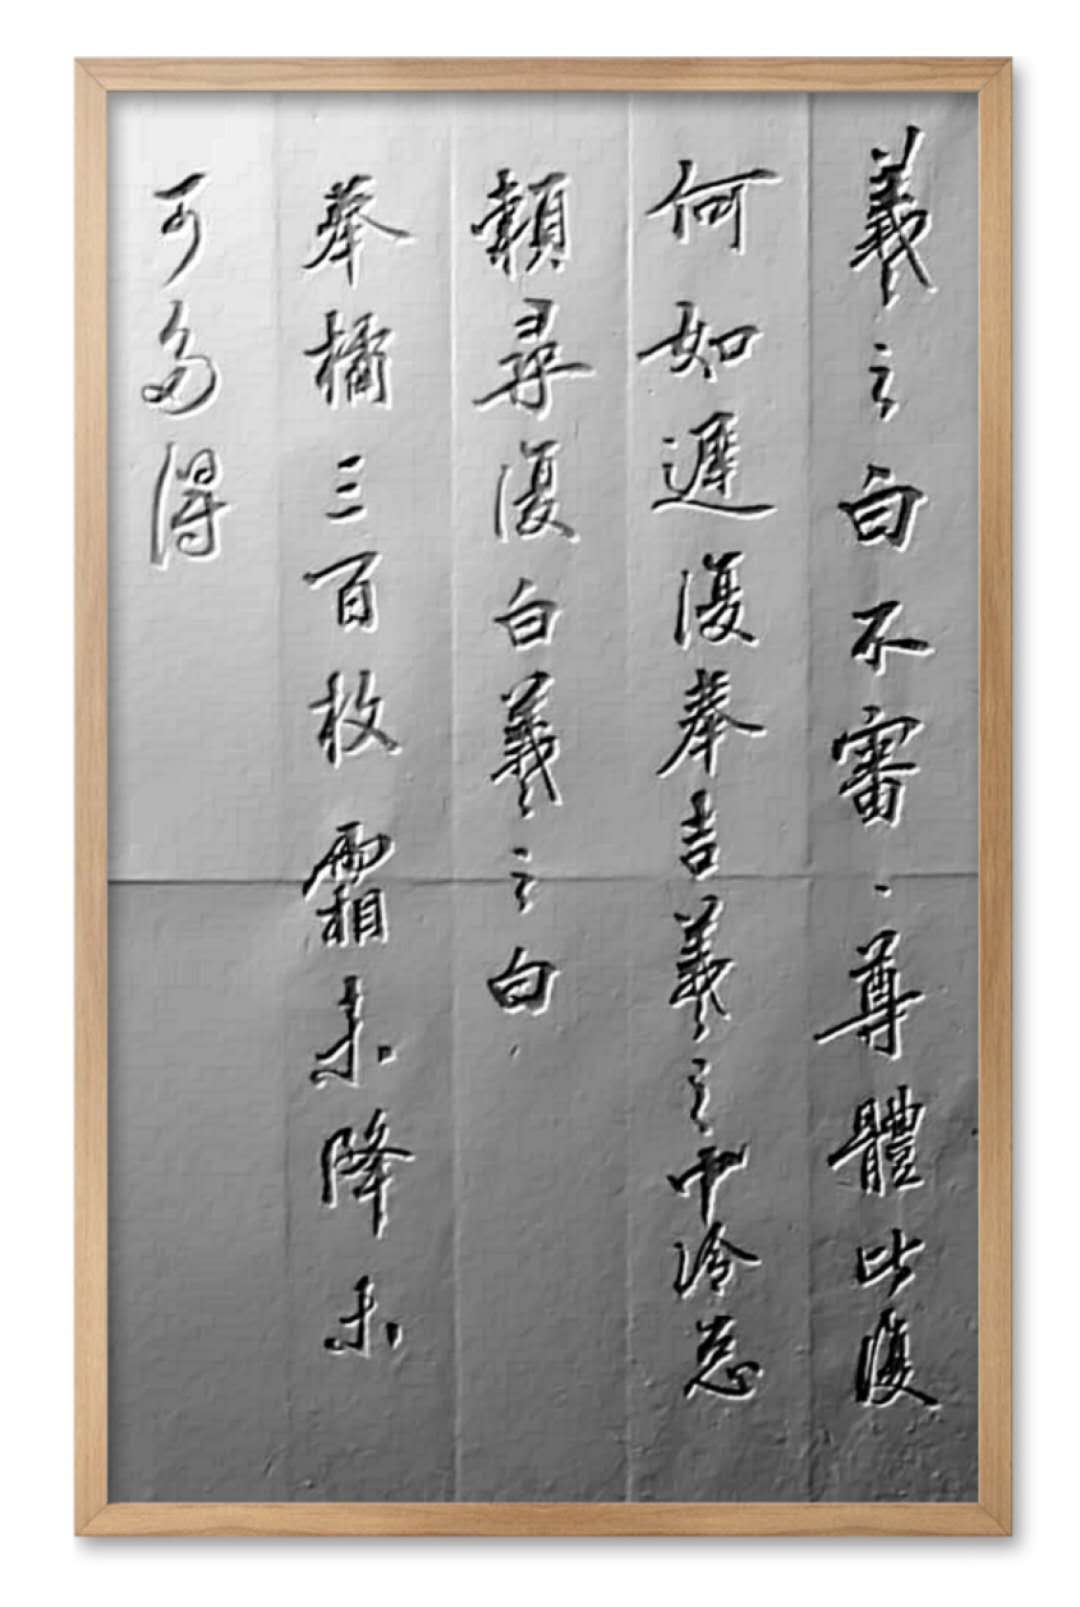 羲之白不審尊體比復
何如遲復奉告羲之中冷無
賴尋復白羲之白
奉橘三百枚霜未降未
可多得